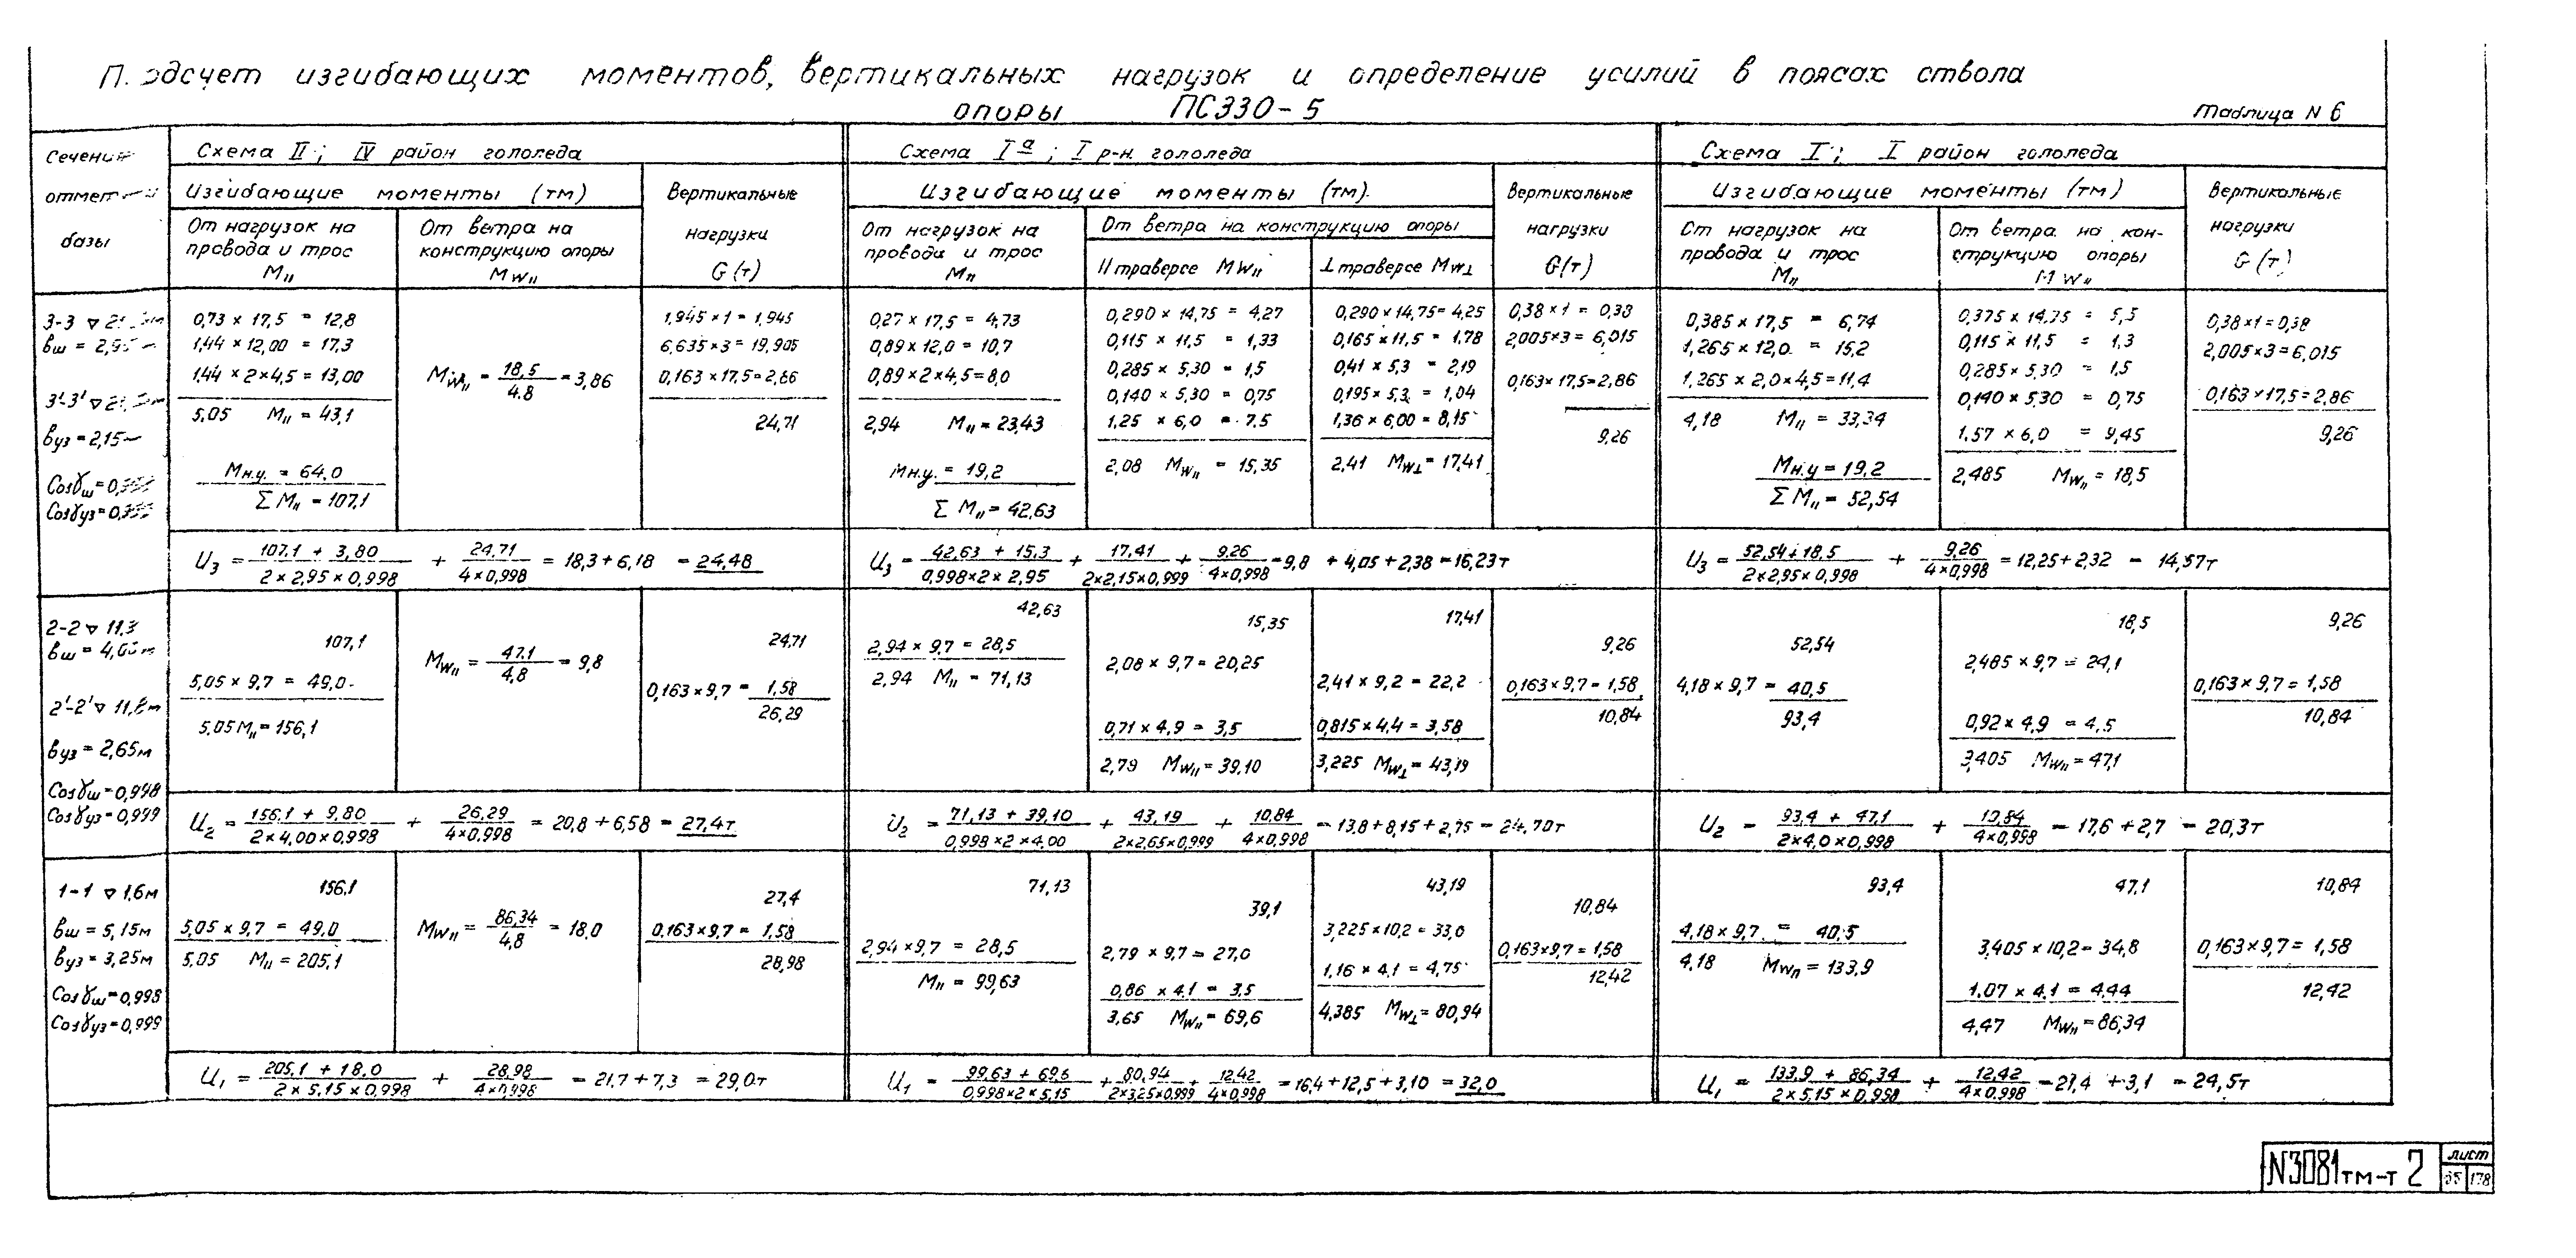 Подсчет изгибающих моментов, вертикальных нагрузок и определение усилий в поясах ствола
опоры ПС330-5
Таблица N 6
Сечение
базы
Схема II; IV район гололеда
Изгибающие моменты (тм)
От нагрузок на
провода и трос
M״
От ветра на
конструкцию опоры
Mw״
Вертикальные
нагрузки
G (т)
Схема Iª; I р-н. гололеда
Изгибающие моменты (тм).
От нагрузок на
провода и трос
Mп
От ветра на конструкцию опоры
|| траверсе Mw״
⊥ траверсе Mw⊥
Вертикальные
нагрузки
G(т)
Схема I; I район гололеда
Изгибающие моменты (тм)
От нагрузок на
провода и трос
M״
От ветра на кон-
струкцию опоры
M w״
Вертикальные
нагрузки
G (т)
3-3 ▽
вш = 2,95м
3'-3' ▽
вуз = 2,15м
Cosγш=
Cosγуз=
0,73 × 17,5 = 12,8
1,44 × 12,00 = 17,3
1,44 × 2 × 4,5 = 13,00
5,05 M״ = 43,1
Mн.у. = 64,0
Σ M״ = 107,1
Mw״ = 18,5 / 4.8 = 3,86
1,945 × 1 = 1,945
6,635 × 3 = 19,905
0,163 × 17,5 = 2,86
24,71
0,27 × 17,5 = 4,73
0,89 × 12,0 = 10,7
0,89 × 2 × 4,5 = 8,0
2,94 M״ = 23,43
Mн.у. = 19,2
Σ M״ = 42,63
0,290 × 14,75 = 4,27
0,115 × 11,5 = 1,33
0,285 × 5,30 = 1,5
0,140 × 5,30 = 0,75
1,25 × 6,0 = 7.5
2,08 Mw״ = 15,35
0,290 × 14,75 = 4,25
0,165 × 11,5 = 1,78
0,41 × 5,3 = 2,19
0,195 × 5,3 = 1,04
1,36 × 6,00 = 8,15
2,41 Mw⊥ = 17,41
0,38 × 1 = 0,38
2,005 × 3 = 6,015
0,163 × 17,5 = 2,86
9,26
0,385 × 17,5 = 6,74
1,265 × 12,0 = 15,2
1,265 × 2,0 × 4,5 = 11,4
4,18 M״ = 33,34
Mн.у = 19,2
Σ M״ = 52,54
0,375 × 14,75 = 5,5
0,115 × 11,5 = 1,3
0,285 × 5,30 = 1,5
0,140 × 5,30 = 0,75
1,57 × 6,0 = 9,45
2,485 Mw״ = 18,5
0,38 × 1 = 0,38
2,005 × 3 = 6,015
0,163 × 17,5 = 2,86
9,26
U3 = 107,1 + 3,80 / 2 × 2,95 × 0,998 + 24,71 / 4 × 0,998 = 18,3 + 6,18 = 24,48
U3 = 42,63 + 15,3 / 0,998 × 2 × 2,95 + 17,41 / 2 × 2,15 × 0,999 + 9,26 / 4 × 0,998 = 9,8 + 4,05 + 2,38 = 16,23т
U3 = 52,54 + 18,5 / 2 × 2,95 × 0,998 + 9,26 / 4 × 0,998 = 12,25 + 2,32 = 14,57т
2-2 ▽ 11,3
вш = 4,00м
2'-2' ▽ 11,8м
вуз = 2,65м
Cosγш = 0,998
Cosγуз = 0,999
107,1
5,05 × 9,7 = 49,0
5,05 M״ = 156,1
Mw״ = 47,1 / 4,8 = 9,8
24,71
0,163 × 9,7 = 1,58
26,29
42,63
2,94 × 9,7 = 28,5
2,94 M״ = 71,13
15,35
2,08 × 9,7 = 20,25
0,71 × 4,9 = 3,5
2,79 Mw״ = 39,10
17,41
2,41 × 9,2 = 22,2
0,815 × 4,4 = 3,58
3,225 Mw⊥ = 43,19
9,26
0,163 × 9,7 = 1,58
10,84
52,54
4,18 × 9,7 = 40,5
93,4
18,5
2,485 × 9,7 = 24,1
0,92 × 4,9 = 4,5
3,405 Mw״ = 47,1
9,26
0,163 × 9,7 = 1,58
10,84
U2 = 156,1 + 9,80 / 2 × 4,00 × 0,998 + 26,29 / 4 × 0,998 = 20,8 + 6,58 = 27,4т
U2 = 71,13 + 39,10 / 0,998 × 2 × 4,00 + 43,19 / 2 × 2,65 × 0,999 + 10,84 / 4 × 0,998 = 13,8 + 8,15 + 2,75 = 24,70т
U2 = 93,4 + 47,1 / 2 × 4,0 × 0,998 + 10,84 / 4 × 0,998 = 17,6 + 2,7 = 20,3т
1-1 ▽ 1,6м
вш = 5,15м
вуз = 3,25м
Cosγш = 0,998
Cosγуз = 0,999
156,1
5,05 × 9,7 = 49,0
5,05 M״ = 205,1
Mw״ = 86,34 / 4,8 = 18,0
27,4
0,163 × 9,7 = 1,58
28,98
71,13
2,94 × 9,7 = 28,5
M״ = 99,63
39,1
2,79 × 9,7 = 27,0
0,86 × 4,1 = 3,5
3,65 Mw״ = 69,6
43,19
3,225 × 10,2 = 33,0
1,16 × 4,1 = 4,75
4,385 Mw⊥ = 80,94
10,84
0,163 × 9,7 = 1,58
12,42
93,4
4,18 × 9,7 = 40,5
4,18 Mwп = 133,9
47,1
3,405 × 10,2 = 34,8
1,07 × 4,1 = 4,44
4,47 Mw״ = 86,34
10,84
0,163 × 9,7 = 1,58
12,42
U1 = 205,1 + 18,0 / 2 × 5,15 × 0,998 + 28,98 / 4 × 0,998 = 21,7 + 7,3 = 29,0т
U1 = 99,63 + 69,6 / 0,998 × 2 × 5,15 + 80,94 / 2 × 3,25 × 0,999 + 12,42 / 4 × 0,998 = 16,4 + 12,5 + 3,10 = 32,0
U1 = 133,9 + 86,34 / 2 × 5,15 × 0,998 + 12,42 / 4 × 0,998 = 21,4 + 3,1 = 24,5т
N3081тм-т 2
лист